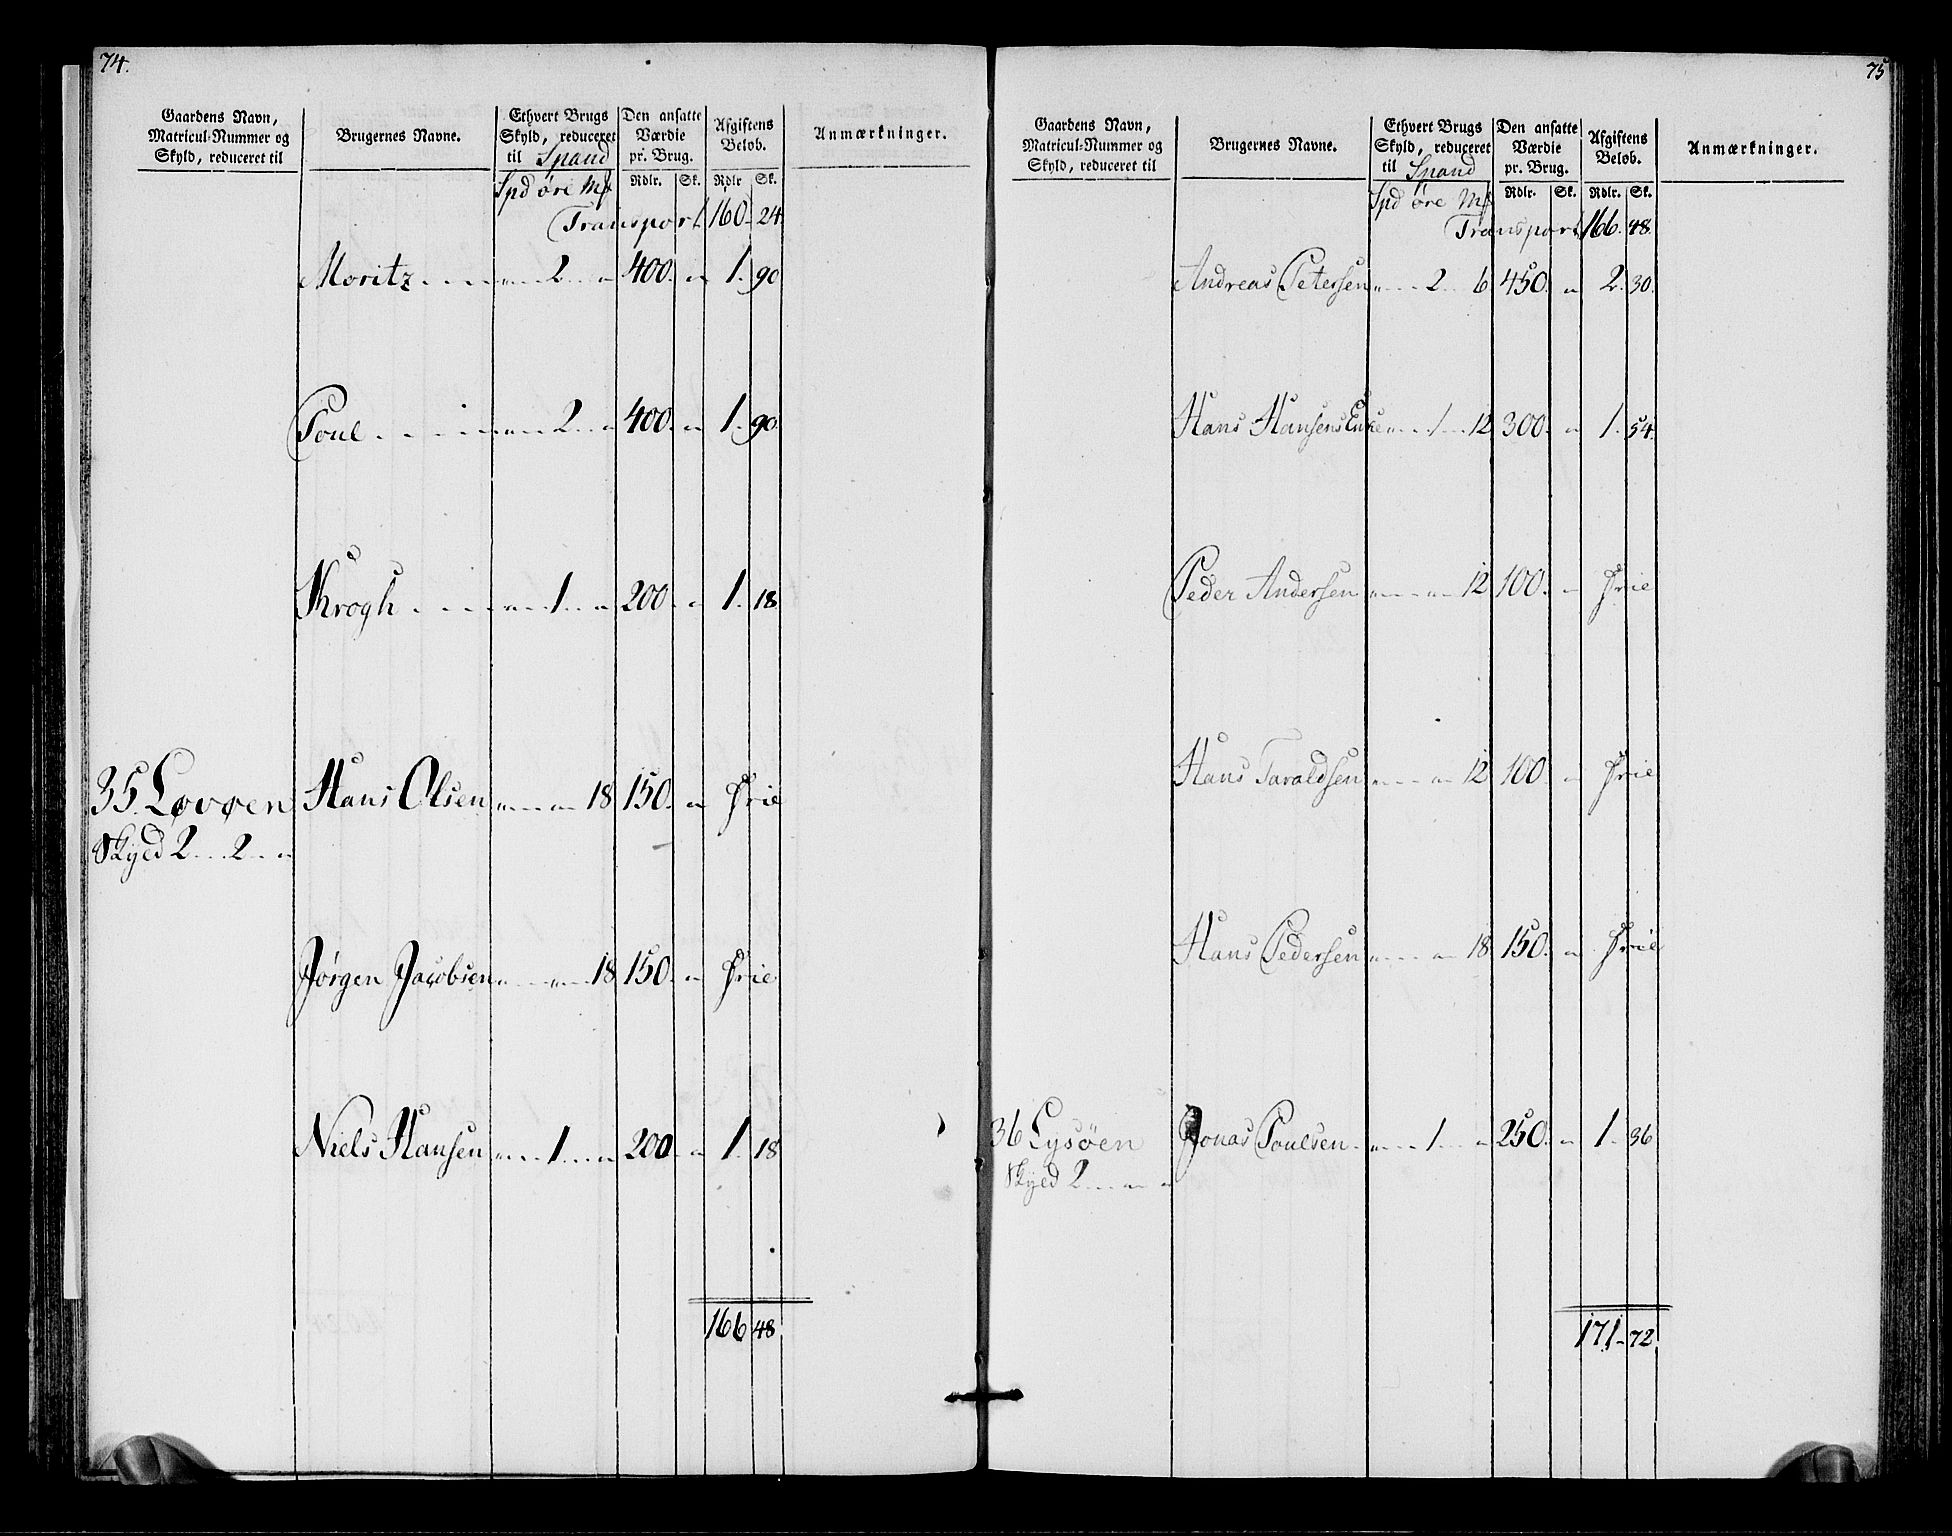 74.
Gaardens Navn, Matricul-Nummer og Skyld, reduceret til
Brugernes Navne.
Ethvert Brugs Skyld, reduceret til Spand
Den ansatte Værdie pr. Brug.
Afgiftens Beløb.
Anmærkninger.
Spd øre Mk Rdlr. Sk. Rdlr Sk.
Transport 160 - 24
Moritz 2 400. 1. 90
Poul 2 400. 1. 90
Krogh 1 200. 1. 18
35. Løvøen Hans Olsen 18 150. Frie
Skyld 2 2
Jørgen Jacobsen 18 150. Frie
Niels Hansen 1 200 1. 18
166 48
75
Gaardens Navn, Matricul-Nummer og Skyld, reduceret til
Brugernes Navne.
Ethvert Brugs Skyld, reduceret til Spand
Den ansatte Værdie pr. Brug.
Afgiftens Beløb.
Anmærkninger.
Spd øre Mk Rdlr. Sk. Rdlr. Sk.
Transport 166. 48.
Andreas Petersen 2 6 450. 2. 30.
Hans Hansens Enke 1 12 300. 1. 54.
Peder Andersen 12 100. Frie
Hans Taraldsen 12 100 Frie
Hans Pedersen 18 150. Frie
36 Lysøen Jonas Poulsen 1 250. 1. 36
Skyld 2
171 - 72.